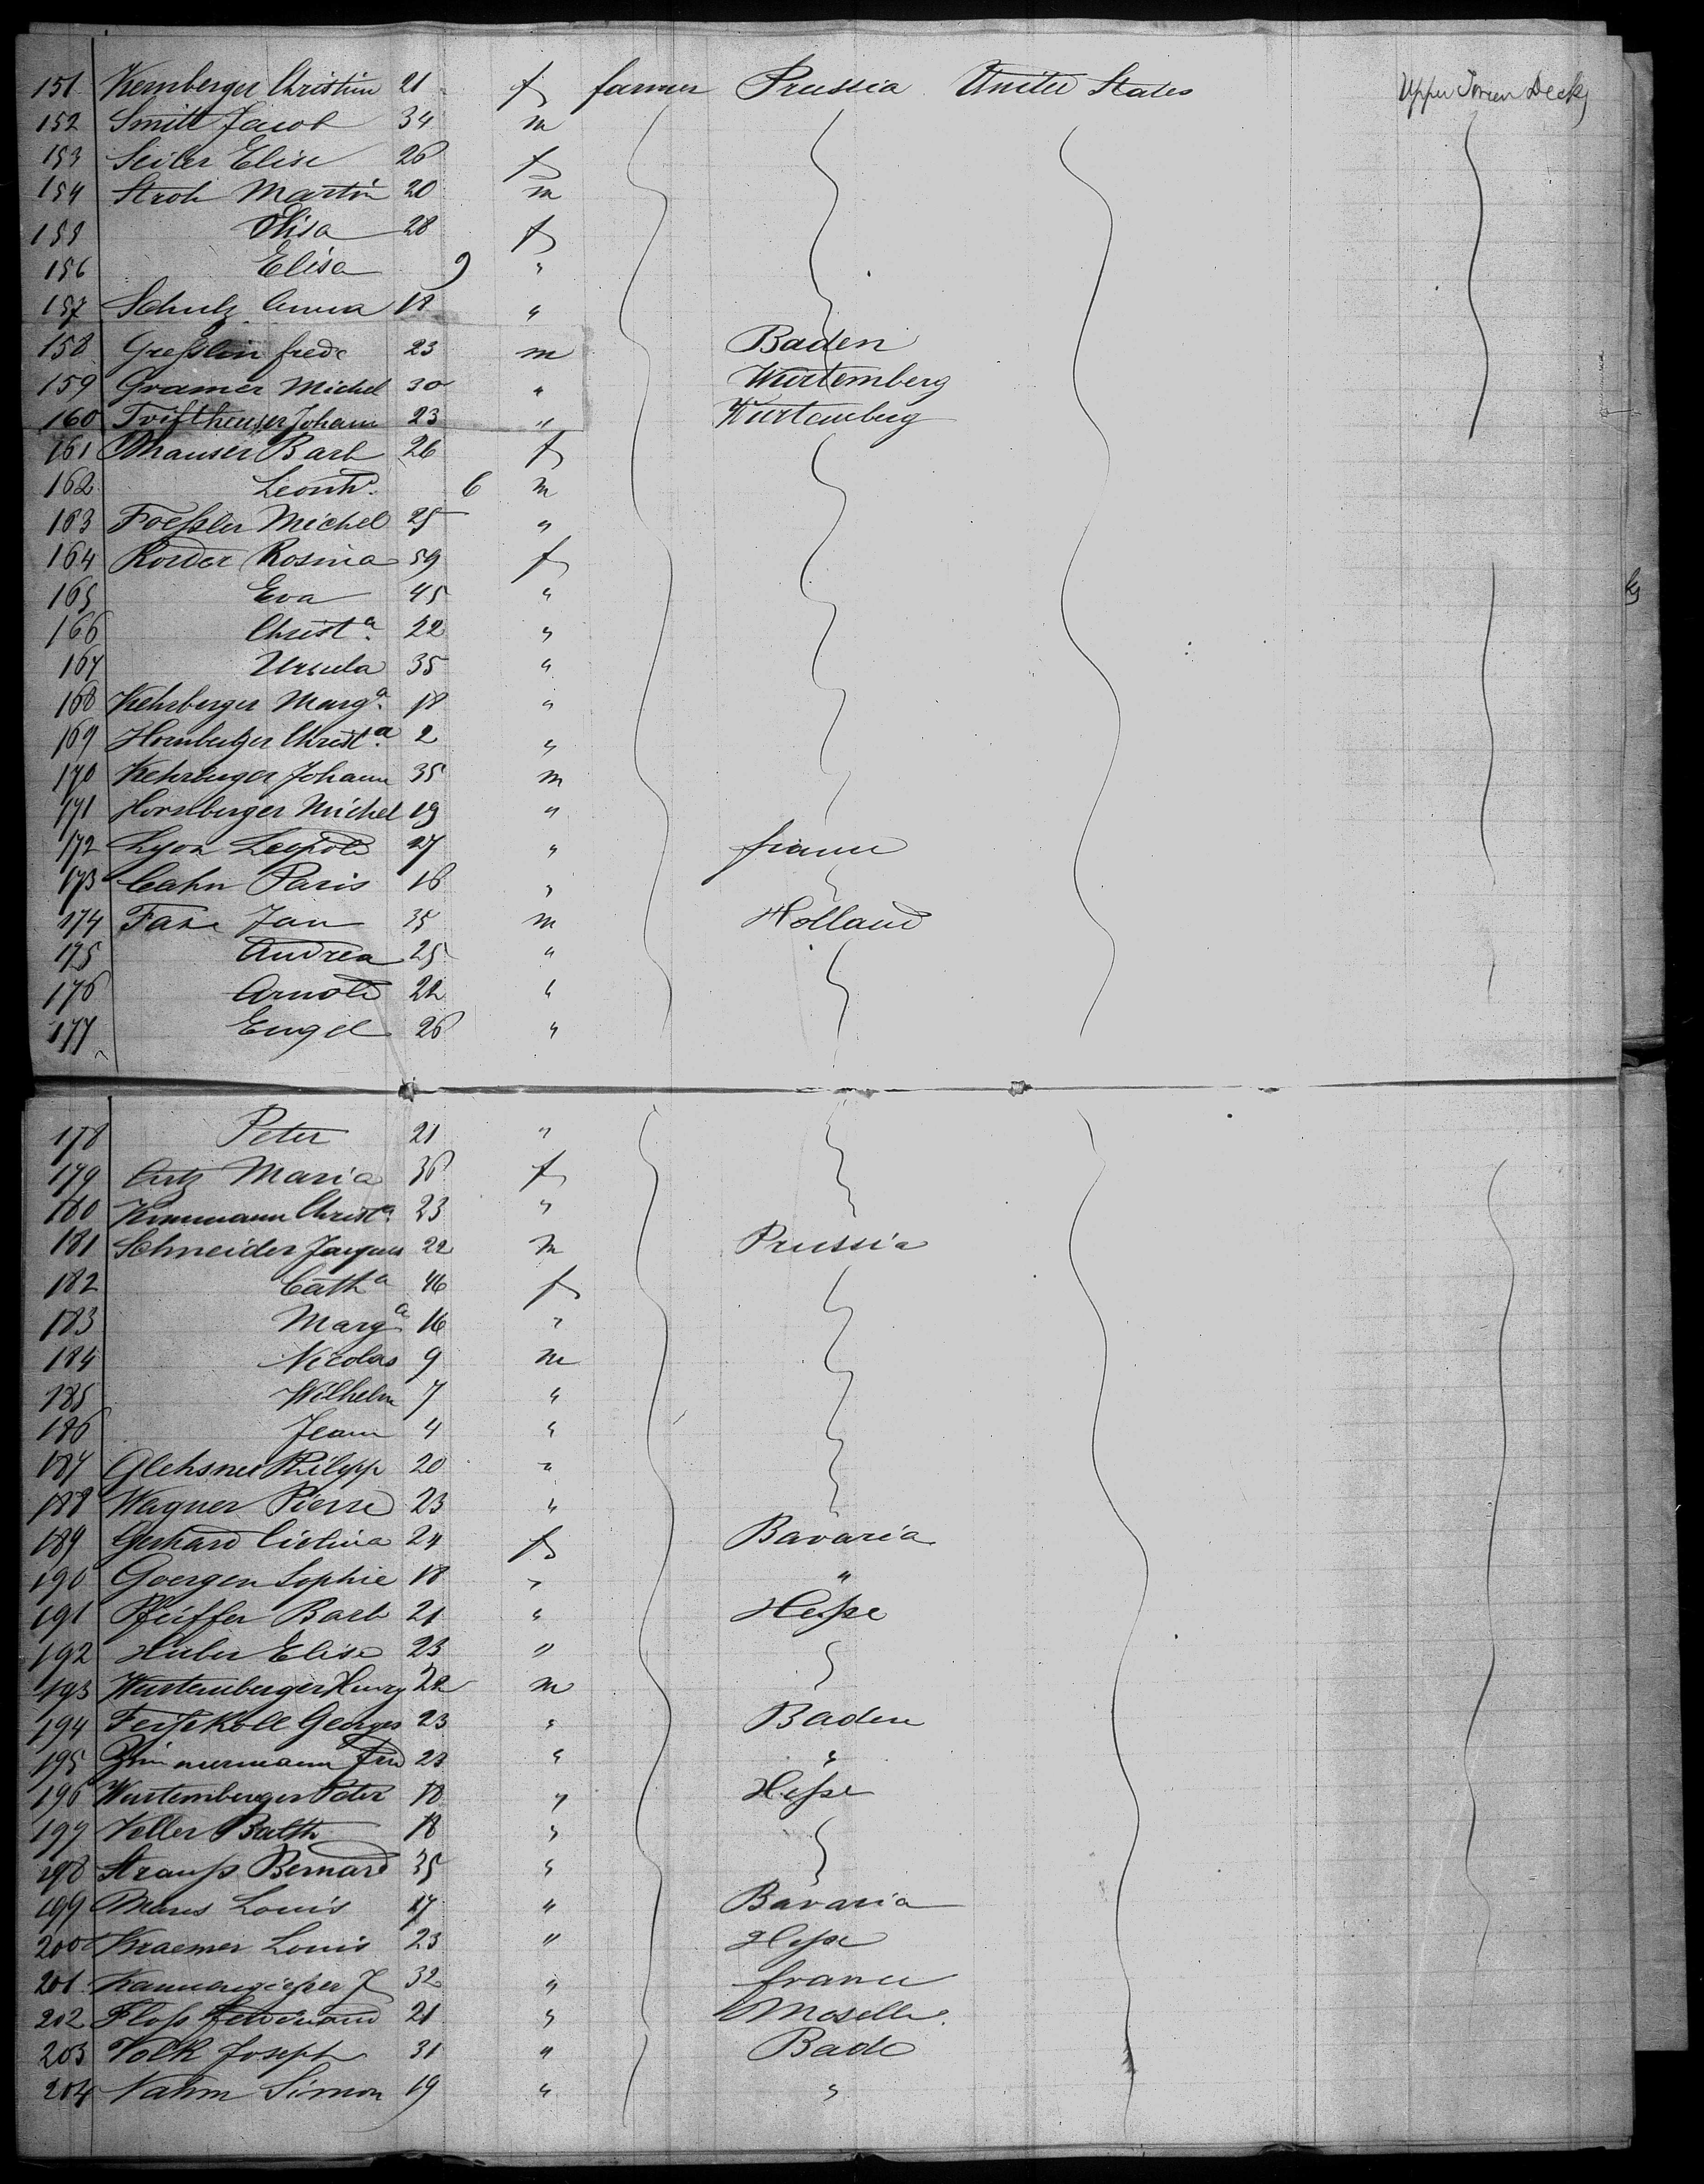 151 Kernberger Christine 21 f farmer Prussia United States Upper Tween Deck
152 Smitt Jacob 34 m
153 Seiler Elise 26 f
154 Stroh Martin 20 m
155 Elisa 28 f
156 Elisa 9 "
157 Schulz Anna 18 "
158 Greßlin fredc 23 m Baden
159 Gramer Michel 30 " Wurtemberg
160 Johann 23 " Wurtemberg
161 Mauser Barb 26 f
162 Leonhd. 6 m
163 Foeßler Michel 25 "
164 Rorder Rosina 59 f
165 Eva 45 "
166 Christa. 22 "
167 Ursula 35 "
168 Kehrberger Marga. 18 "
169 Hornberger Christa. 2 "
170 Kehrberger Johann 35 m
171 Hornberger Michel 19 "
172 Lyon Leopold 27 " france
173 Cahn Paris 16 "
174 Jan 35 m Holland
175 Andrea 25 "
176 Arnold 22 "
177 Engel 26 "
178 Peter 21 "
179 Artz Maria 36 f
180 Christa. 23 "
181 Schneider Jacques 22 m Prussia
182 Catha 46 f
183 Marga 16 "
184 Nicolas 9 m
185 Wilhelm 7 "
186 Jean 4 "
187 Glehsner Philipp 20 "
188 Wagner Pierre 23 "
189 Gerhard 24 f Bavaria
190 Goergen Sophie 18 " "
191 Pfeiffer Barb 21 " Heßse
192 Huber Elise 23 "
193 Wurtemberger Henry 22 m
194 Georges 23 " Baden
195 Zimmermann Frd 23 " "
196 Wurtemberger Peter 18 " Heßse
197 Keller Balth 18 "
198 Strauß Bernard 35 "
199 Louis 17 " Bavaria
200 Kraemer Louis 23 " Heßse
201 Kannengießer J 32 " france
202 Floß Ferdinand 21 " Moselle.
203 Volk Joseph 31 " Bade
204 Nahm Simon 19 " "